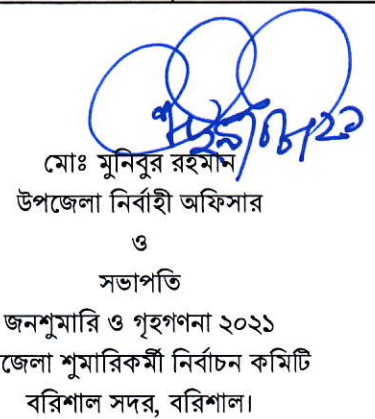 মোঃ মুনিবুর রহমান
উপজেলা নির্বাহী অফিসার
ও
সভাপতি
জনশুমারি ও গৃহগণনা ২০২১
জেলা শুমারিকর্মী নির্বাচন কমিটি
বরিশাল সদর, বরিশাল।